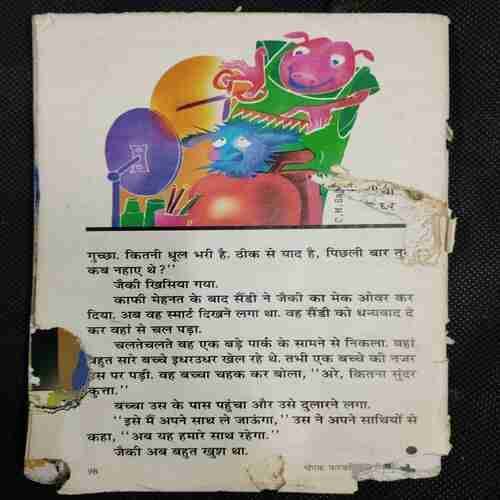 C.M.
गुच्छा. कितनी धूल भरी है. ठीक से याद है, पिछली बार
कब नहाए थे?''
जैकी खिसिया गया.
काफी मेहनत के बाद सैंडी ने जैकी का मेक ओवर कर
दिया. अब वह स्मार्ट दिखने लगा था. वह सैंडी को धन्यवाद दे
कर वहां से चल पड़ा.
चलतेचलते वह एक बड़े पार्क के सामने से निकला. वहां
बहुत सारे बच्चे इधरउधर खेल रहे थे. तभी एक बच्चे की नजर
उस पर पड़ी. वह बच्चा चहक कर बोला, ''अरे, कितना सुंदर
कुत्ता.''
बच्चा उस के पास पहुंचा और उसे दुलारने लगा.
''इसे मैं अपने साथ ले जाऊंगा,'' उस ने अपने साथियों से
कहा, ''अब यह हमारे साथ रहेगा.''
जैकी अब बहुत खुश था.